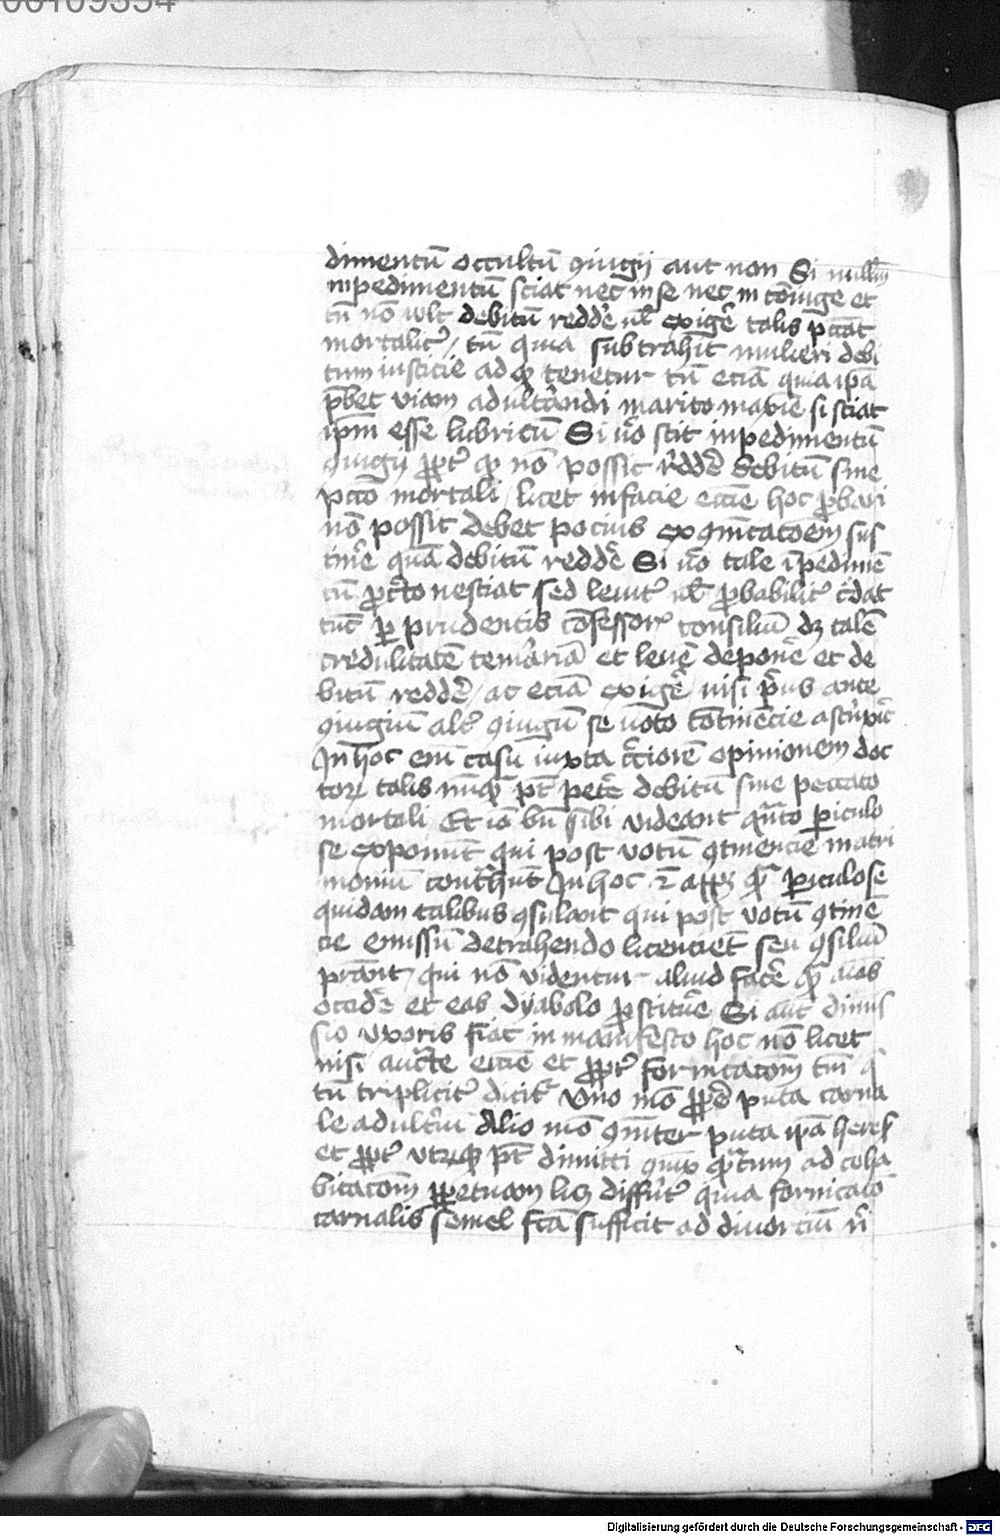 00109334
dimentū occultū ꝯiugij aut non Si nullū
inpedimentū sciat nec in se nec in cōiuge et
tn̄ nō wlt debitū redde᷑ ul̓ exige᷑ talis pc̄cat
mortalit᷑ / tū quia subtrahit mulieri debi
tum iusticie ad qd̓ tenetur tū eciā quia ip̄a
p̄bet viam adult᷑andi marito maxīe si sciat
ip̄m esse lubricū Si ūo scit inpedimentū
ꝯiugij ꝓpt᷑ qd̓ nō possit redde᷑ debitū sine
pctō mortali / licet in facie eccīe hoc ꝓbari
nō possit debet pocius exꝯm̄icacōem sus
tine᷑ quā debitū redde᷑ Si ūo tale īpedimē
tū ꝓc᷑to nesciat sed leuit᷑ ul̓ ꝓbabilit᷑ c᷑dat
tūc ꝑ prudentis cōfessor᷑ consiliū dꝫ talē
credulitatē temerariā et leuē depone᷑ et de
bitū redde᷑ / ac eciā exige᷑ nisi p᷑us ante
ꝯiugiū alt᷑ ꝯiugū se uoto cōtinēcie astrīx᷑it
In hoc em̄ casu iuxta c᷑ciorē opinionem doc
toꝝ talis nūqͣ pt̄ pete᷑ debitū sine peccato
mortali Et iō bn̄ sibi videant qͣnto ꝑiculo
se exponunt qui post votū ꝯtinencie matri
moniū cont᷑hunt In hoc ꝑiculose
quidam talibus ꝯsulant qui post votū ꝯtinē
cie emissū detrahendo licenciēt seu ꝯsiliū
prāt / qui nō videntur aliud face᷑ qͣ aīas
occide᷑ et eas dyabolo ꝓstitue᷑ Si aut̄ dimis
sio vxoris fiat in manifesto hoc nō licet
nisi auct᷑te eccīe et ꝓpt᷑ fornicacōm tm̄ q̄
tn̄ triplicit᷑ dicit᷑ Vno mō ꝓpe᷑ puta carna
le adult᷑iū Alio mō ꝯmūiter puta ip̄a heresis
et ꝓpt᷑ utrūqꝫ pt̄ dimitti ꝯiūx qͣntum ad coha
bitacōm ꝑpetuam licꝫ diffe᷑nt᷑ quia fornicacō
carnalis semel fc̄a sufficit ad diuorciū n̄
Digitalisierung gefördert durch die Deutsche Forschungsgemeinschaft - DFG